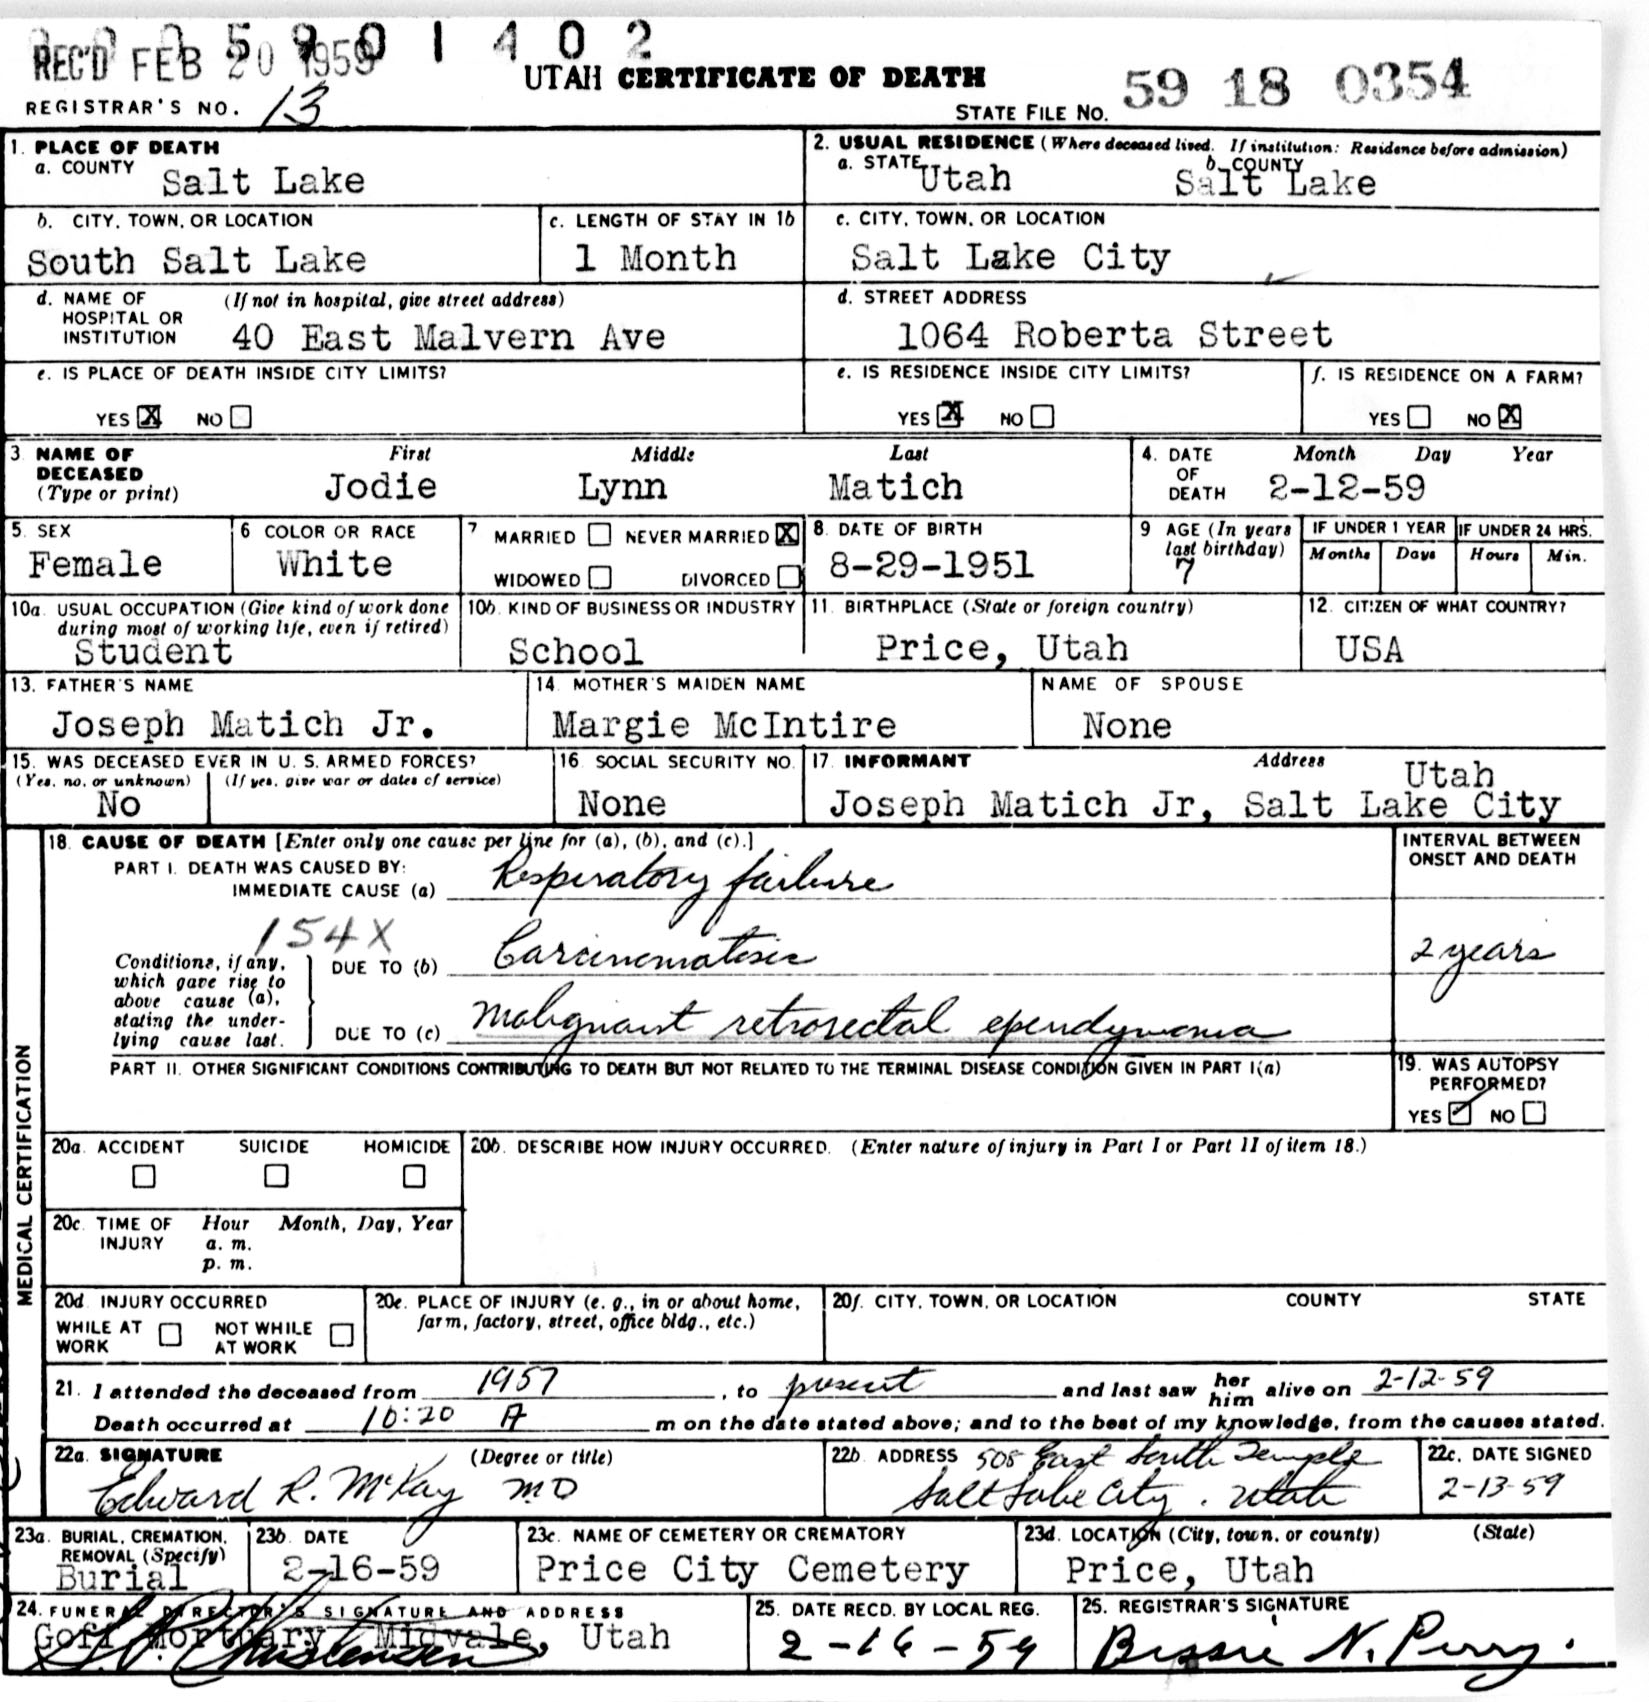 0 0 5 9 0 1 4 0 2
REC'D FEB 20 1959
UTAH CERTIFICATE OF DEATH
59 18 0354
REGISTRAR'S NO. 13
STATE FILE NO.
1. PLACE OF DEATH
a. COUNTY Salt Lake
2. USUAL RESIDENCE (Where deceased lived. If institution: Residence before admission)
a. STATE Utah b. COUNTY Salt Lake
b. CITY, TOWN, OR LOCATION
South Salt Lake
c. LENGTH OF STAY IN 1b
1 Month
c. CITY, TOWN, OR LOCATION
Salt Lake City
d. NAME OF HOSPITAL OR INSTITUTION (If not in hospital, give street address)
40 East Malvern Ave
d. STREET ADDRESS
1064 Roberta Street
e. IS PLACE OF DEATH INSIDE CITY LIMITS?
YES X NO
e. IS RESIDENCE INSIDE CITY LIMITS?
YES X NO
f. IS RESIDENCE ON A FARM?
YES NO X
3 NAME OF DECEASED (Type or print)
First Middle Last
Jodie Lynn Matich
4. DATE OF DEATH Month Day Year
2-12-59
5. SEX
Female
6 COLOR OR RACE
White
7 MARRIED NEVER MARRIED X
WIDOWED DIVORCED
8. DATE OF BIRTH
8-29-1951
9 AGE (In years last birthday)
7
IF UNDER 1 YEAR
Months Days
IF UNDER 24 HRS.
Hours Min.
10a. USUAL OCCUPATION (Give kind of work done during most of working life, even if retired)
Student
10b. KIND OF BUSINESS OR INDUSTRY
School
11. BIRTHPLACE (State or foreign country)
Price, Utah
12. CITIZEN OF WHAT COUNTRY?
USA
13. FATHER'S NAME
Joseph Matich Jr.
14. MOTHER'S MAIDEN NAME
Margie McIntire
NAME OF SPOUSE
None
15. WAS DECEASED EVER IN U. S. ARMED FORCES?
(Yes, no, or unknown) (If yes, give war or dates of service)
No
16. SOCIAL SECURITY NO.
None
17. INFORMANT Address
Joseph Matich Jr, Salt Lake City Utah
MEDICAL CERTIFICATION
18. CAUSE OF DEATH [Enter only one cause per line for (a), (b), and (c).]
INTERVAL BETWEEN ONSET AND DEATH
PART I. DEATH WAS CAUSED BY:
IMMEDIATE CAUSE (a) Respiratory failure
154X
Conditions, if any, which gave rise to above cause (a), stating the underlying cause last.
DUE TO (b) Carcinomatosis
2 years
DUE TO (c) Malignant retrorectal ependymoma
PART II. OTHER SIGNIFICANT CONDITIONS CONTRIBUTING TO DEATH BUT NOT RELATED TO THE TERMINAL DISEASE CONDITION GIVEN IN PART I(a)
19. WAS AUTOPSY PERFORMED?
YES ✓ NO
20a. ACCIDENT SUICIDE HOMICIDE
20b. DESCRIBE HOW INJURY OCCURRED. (Enter nature of injury in Part I or Part II of item 18.)
20c. TIME OF INJURY Hour Month, Day, Year
a. m.
p. m.
20d. INJURY OCCURRED
WHILE AT WORK NOT WHILE AT WORK
20e. PLACE OF INJURY (e. g., in or about home, farm, factory, street, office bldg., etc.)
20f. CITY, TOWN, OR LOCATION COUNTY STATE
21. I attended the deceased from 1957, to present and last saw her him alive on 2-12-59
Death occurred at 10:20 A m on the date stated above; and to the best of my knowledge, from the causes stated.
22a. SIGNATURE (Degree or title)
Edward R. McKay MD
22b. ADDRESS 508 East South Temple
Salt Lake City, Utah
22c. DATE SIGNED
2-13-59
23a. BURIAL, CREMATION, REMOVAL (Specify)
Burial
23b. DATE
2-16-59
23c. NAME OF CEMETERY OR CREMATORY
Price City Cemetery
23d. LOCATION (City, town, or county) (State)
Price, Utah
24. FUNERAL DIRECTOR'S SIGNATURE AND ADDRESS
Goff Mortuary Midvale, Utah
25. DATE RECD. BY LOCAL REG.
2-16-59
25. REGISTRAR'S SIGNATURE
Bessie N. Perry.